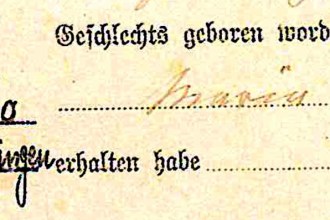 Geschlechts geboren word
o Maria
ingen erhalten habe